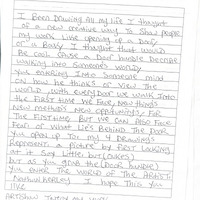 I Been Drawing All my life I thought
of a new creative way To Show people
my work. Like opening of a Door,
or a Book. I thought that would
Be cool cause a Door handle Decribe
walking into Someone's world.
you entering Into Someone mind
on how he thinks or View The
world, with every Door we walk into
the First time we face New things
New methods New oppurtunitys For
The First time. But we can Also face
Fear of what lies Behind The Door
you open up. my 4 Drawings
Represent. a picture by first Looking
at it Say Little but (cakes)
but as you grab the (Door handle)
you enter The WORLD OF THE ARTIST
I hope This you
like